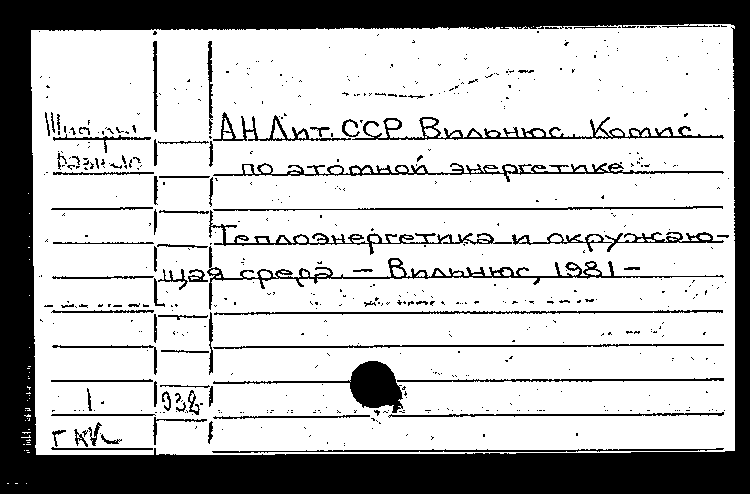 Шифры АН Лит. ССР Вильнюс. Комис.
разные по атомной энергетике.
Теплоэнергетика и окружаю-
щая среда. – Вильнюс, 1981 –
1.
ГКИ